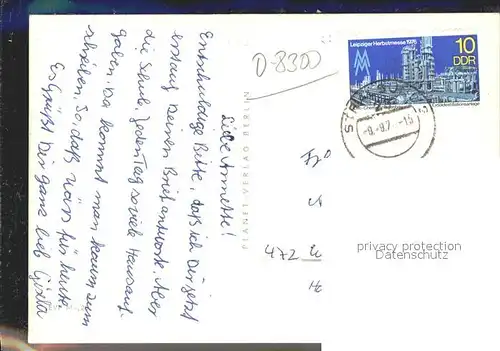 Liebe Annette!
Entschuldige Bitte, daß ich Dir jetzt
erst auf Deinen Brief antworte. Aber
die Schule. Jeden Tag so viele Hausauf-
gaben. Da kommt man kaum zum
schreiben. So, daß wärs für heute
Es Grüßt Dir ganz lieb Gisela
PLANET-VERLAG BERLIN
D-8300
Leipziger Herbstmesse 1976
10
DDR
-8.-9.7 -15
472
privacy protection
Datenschutz